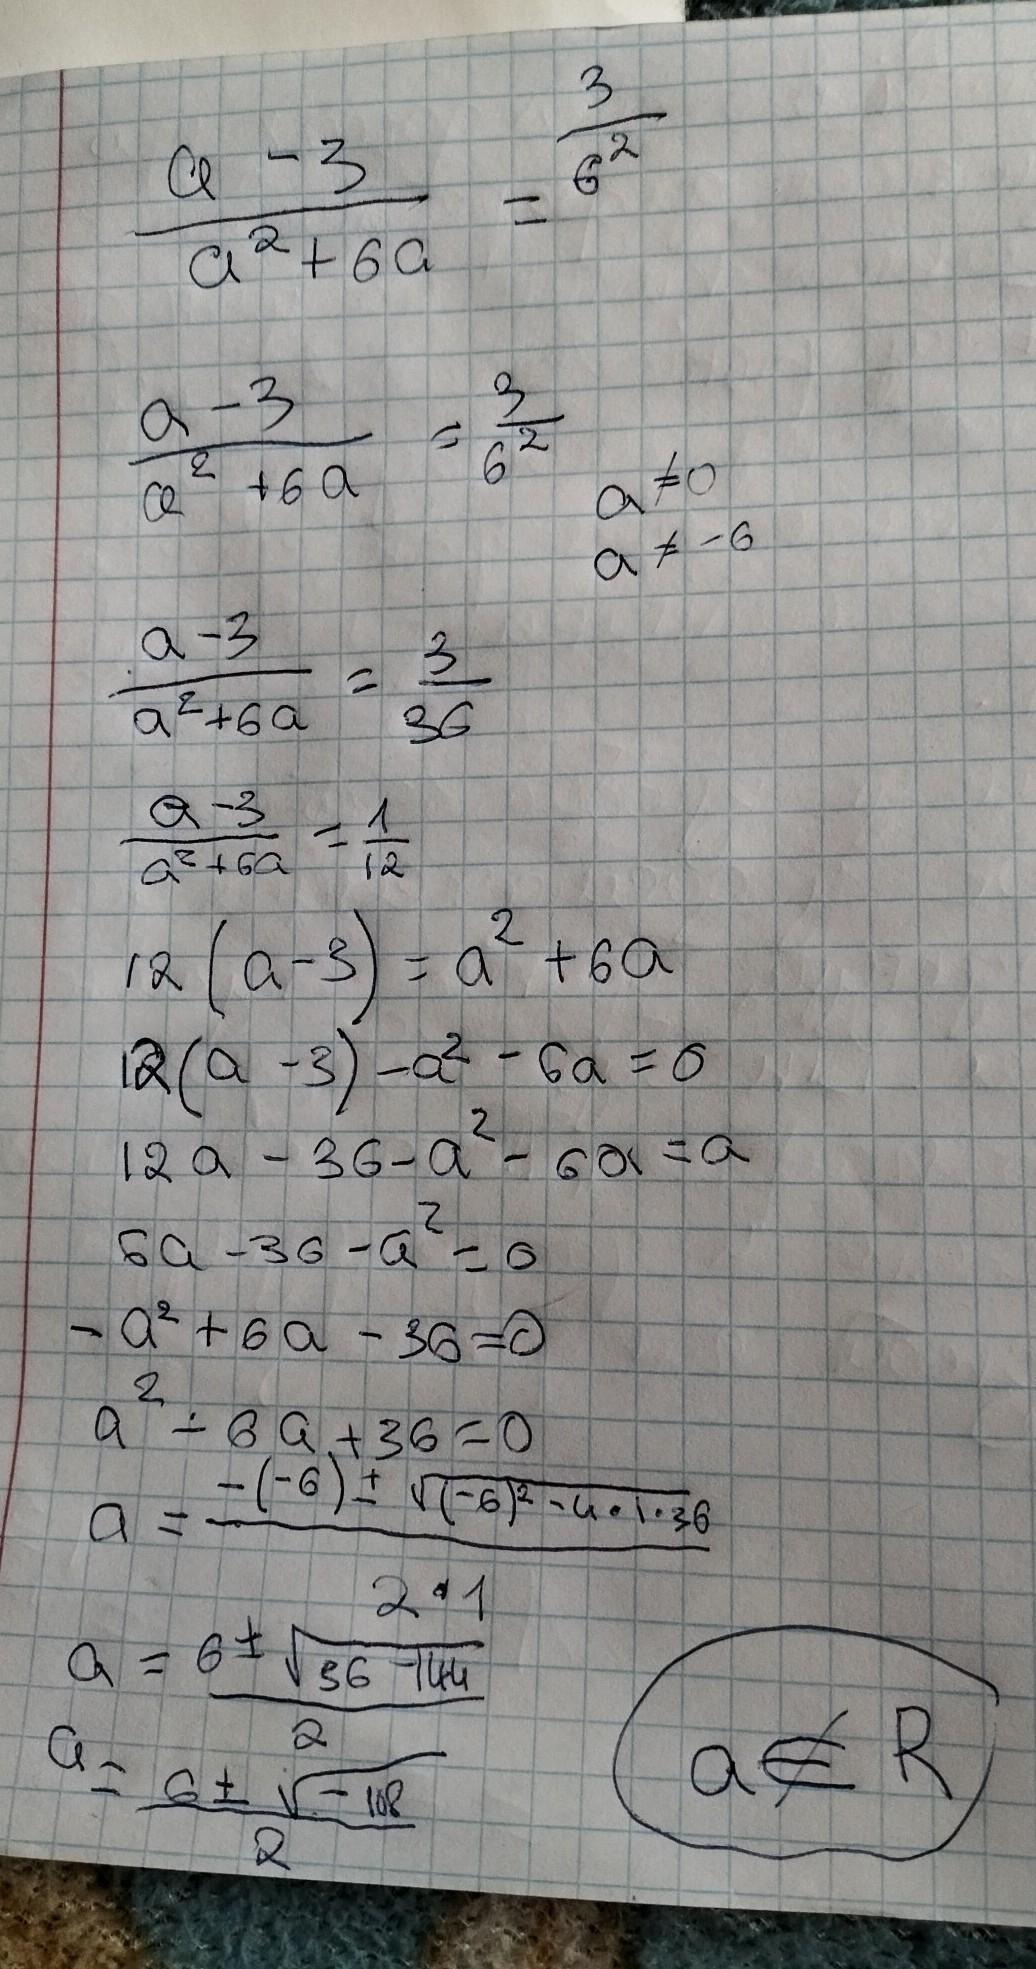 a - 3 / a² + 6a = 3 / 6²
a - 3 / a² + 6a = 3 / 6²
a ≠ 0
a ≠ -6
a - 3 / a² + 6a = 3 / 36
a - 3 / a² + 6a = 1 / 12
12 (a - 3) = a² + 6a
12 (a - 3) - a² - 6a = 0
12a - 36 - a² - 6a = a
6a - 36 - a² = 0
- a² + 6a - 36 = 0
a² - 6a + 36 = 0
a = -(-6) ± √(-6)² - 4 · 1 · 36 / 2 · 1
a = 6 ± √36 - 144 / 2
a = 6 ± √-108 / 2
a ∉ R